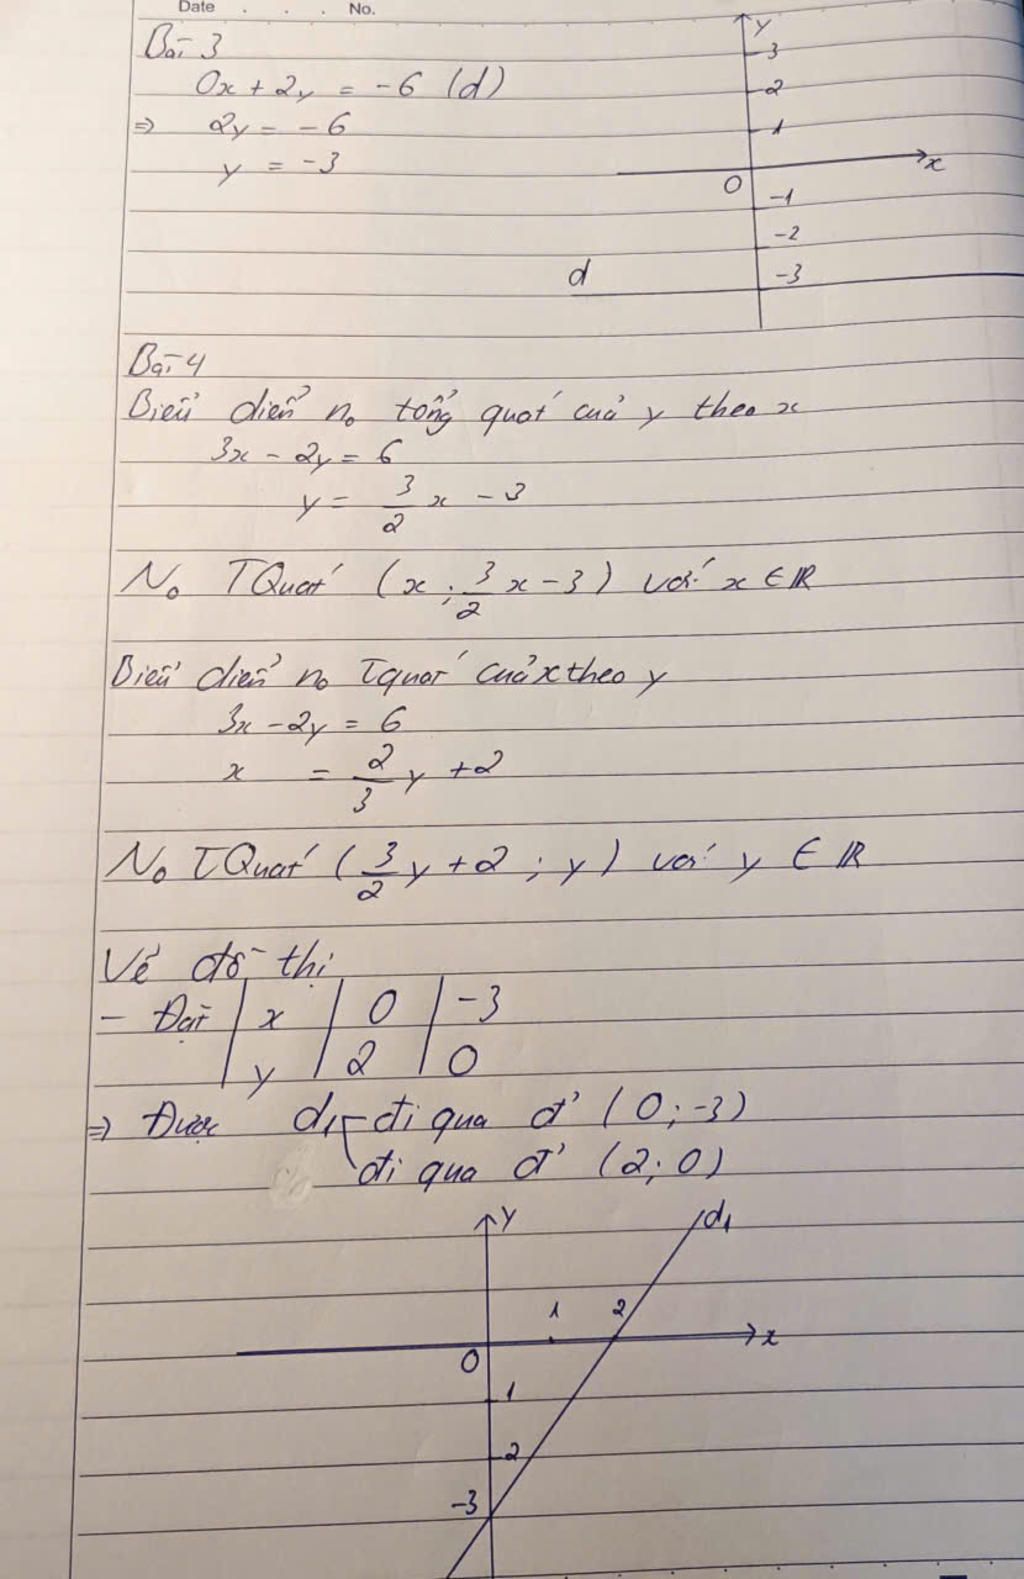 Date . . . No.
Bài 3
0x + 2y = -6 (d)
⇒ 2y = -6
y = -3
y
3
2
1
x
0
-1
-2
d
-3
Bài 4
Biểu diễn no tổng quát của y theo x
3x - 2y = 6
y = 3/2 x - 3
No TQuát (x ; 3/2 x - 3) với x ∈ ℝ
Biểu diễn no Tquát của x theo y
3x - 2y = 6
x = 2/3 y + 2
No TQuát (3/2 y + 2 ; y) với y ∈ ℝ
Vẽ đồ thị
- Đặt | x | 0 | -3
| y | 2 | 0
⇒ Được d1 đi qua đ' (0 ; -3)
đi qua đ' (2 ; 0)
y
d1
1 2
x
0
1
2
-3